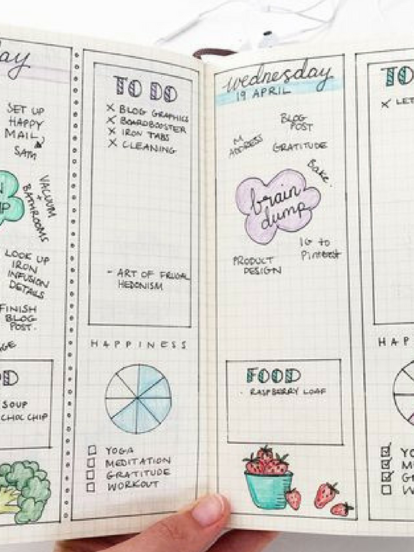 ay
SET UP
HAPPY
MAIL
SAM
VACUUM
+
BATHROOMS
LOOK UP
IRON
INFUSION
DETAILS
FINISH
BLOG
POST.
SOUP
CHOC CHIP
TO DO
X BLOG GRAPHICS
X BOARDBOOSTER
X IRON TABS
X CLEANING
- ART OF FRUGAL
HEDONISM
HAPPINESS
YOGA
MEDITATION
GRATITUDE
WORKOUT
wednesday
19 APRIL
BLOG
POST
M
ADDRESS
GRATITUDE
Bake.
brain
dump
IG to
Pinterest
PRODUCT
DESIGN
FOOD
- RASPBERRY LOAF
TO
X LET
HAP
YO
M
G
W